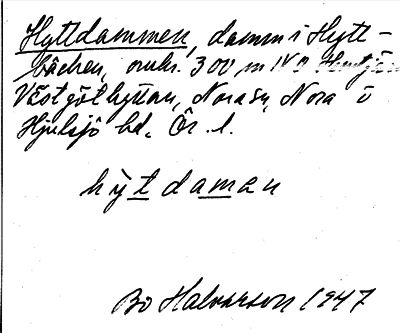 Hyttdammen, damm i Hytt-
bäcken, omkr. 300 m NO
Västgöthyttan, Nora sn, Nora o
Hjulsjö bd, Ör. l.
hỳt daman
Bo Halvarson 1947